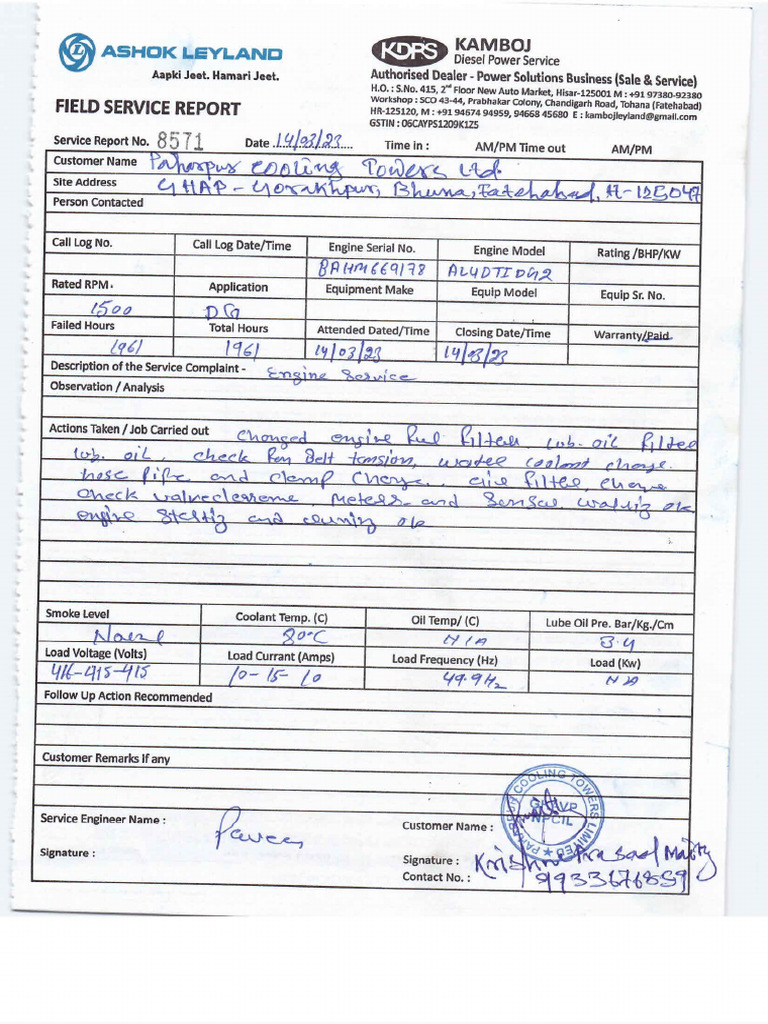 ASHOK LEYLAND
Aapki Jeet. Hamari Jeet.
KDPS KAMBOJ
Diesel Power Service
Authorised Dealer - Power Solutions Business (Sale & Service)
H.O. : S.No. 415, 2nd Floor New Auto Market, Hisar-125001 M : +91 97380-92380
Workshop : SCO 43-44, Prabhakar Colony, Chandigarh Road, Tohana (Fatehabad)
HR-125120, M : +91 94674 94959, 94668 45680 E : kambojleyland@gmail.com
GSTIN : 06CAYPS1209K1Z5
FIELD SERVICE REPORT
Service Report No. 8571 Date 14/03/23 Time in : AM/PM Time out AM/PM
Customer Name Paharpur Cooling Towers Ltd.
Site Address GHAP - Gorakhpur, Bhuna, Fatehabad, H-125047
Person Contacted
Call Log No. Call Log Date/Time Engine Serial No. Engine Model Rating /BHP/KW
BAHM669178 AL4DTIDG2
Rated RPM. Application Equipment Make Equip Model Equip Sr. No.
1500 DG
Failed Hours Total Hours Attended Dated/Time Closing Date/Time Warranty/Paid
1961 1961 14/03/23 14/03/23
Description of the Service Complaint - Engine Service
Observation / Analysis
Actions Taken / Job Carried out Changed engine fuel filter, lub. oil filter
lub. oil, check Fan Belt tension, water coolant change.
hose pipe and clamp change, air filter change
check meters and sensor working ok
engine and ok
Smoke Level Coolant Temp. (C) Oil Temp/ (C) Lube Oil Pre. Bar/Kg./Cm
80°C N/A 3.4
Load Voltage (Volts) Load Currant (Amps) Load Frequency (Hz) Load (Kw)
416-415-415 10-15-10 49.9Hz NA
Follow Up Action Recommended
Customer Remarks if any
PAHARPUR COOLING TOWERS LIMITED
NPCIL
Service Engineer Name :
Customer Name :
Signature :
Signature : Krishna Prasad Maity
Contact No. : 9933676859